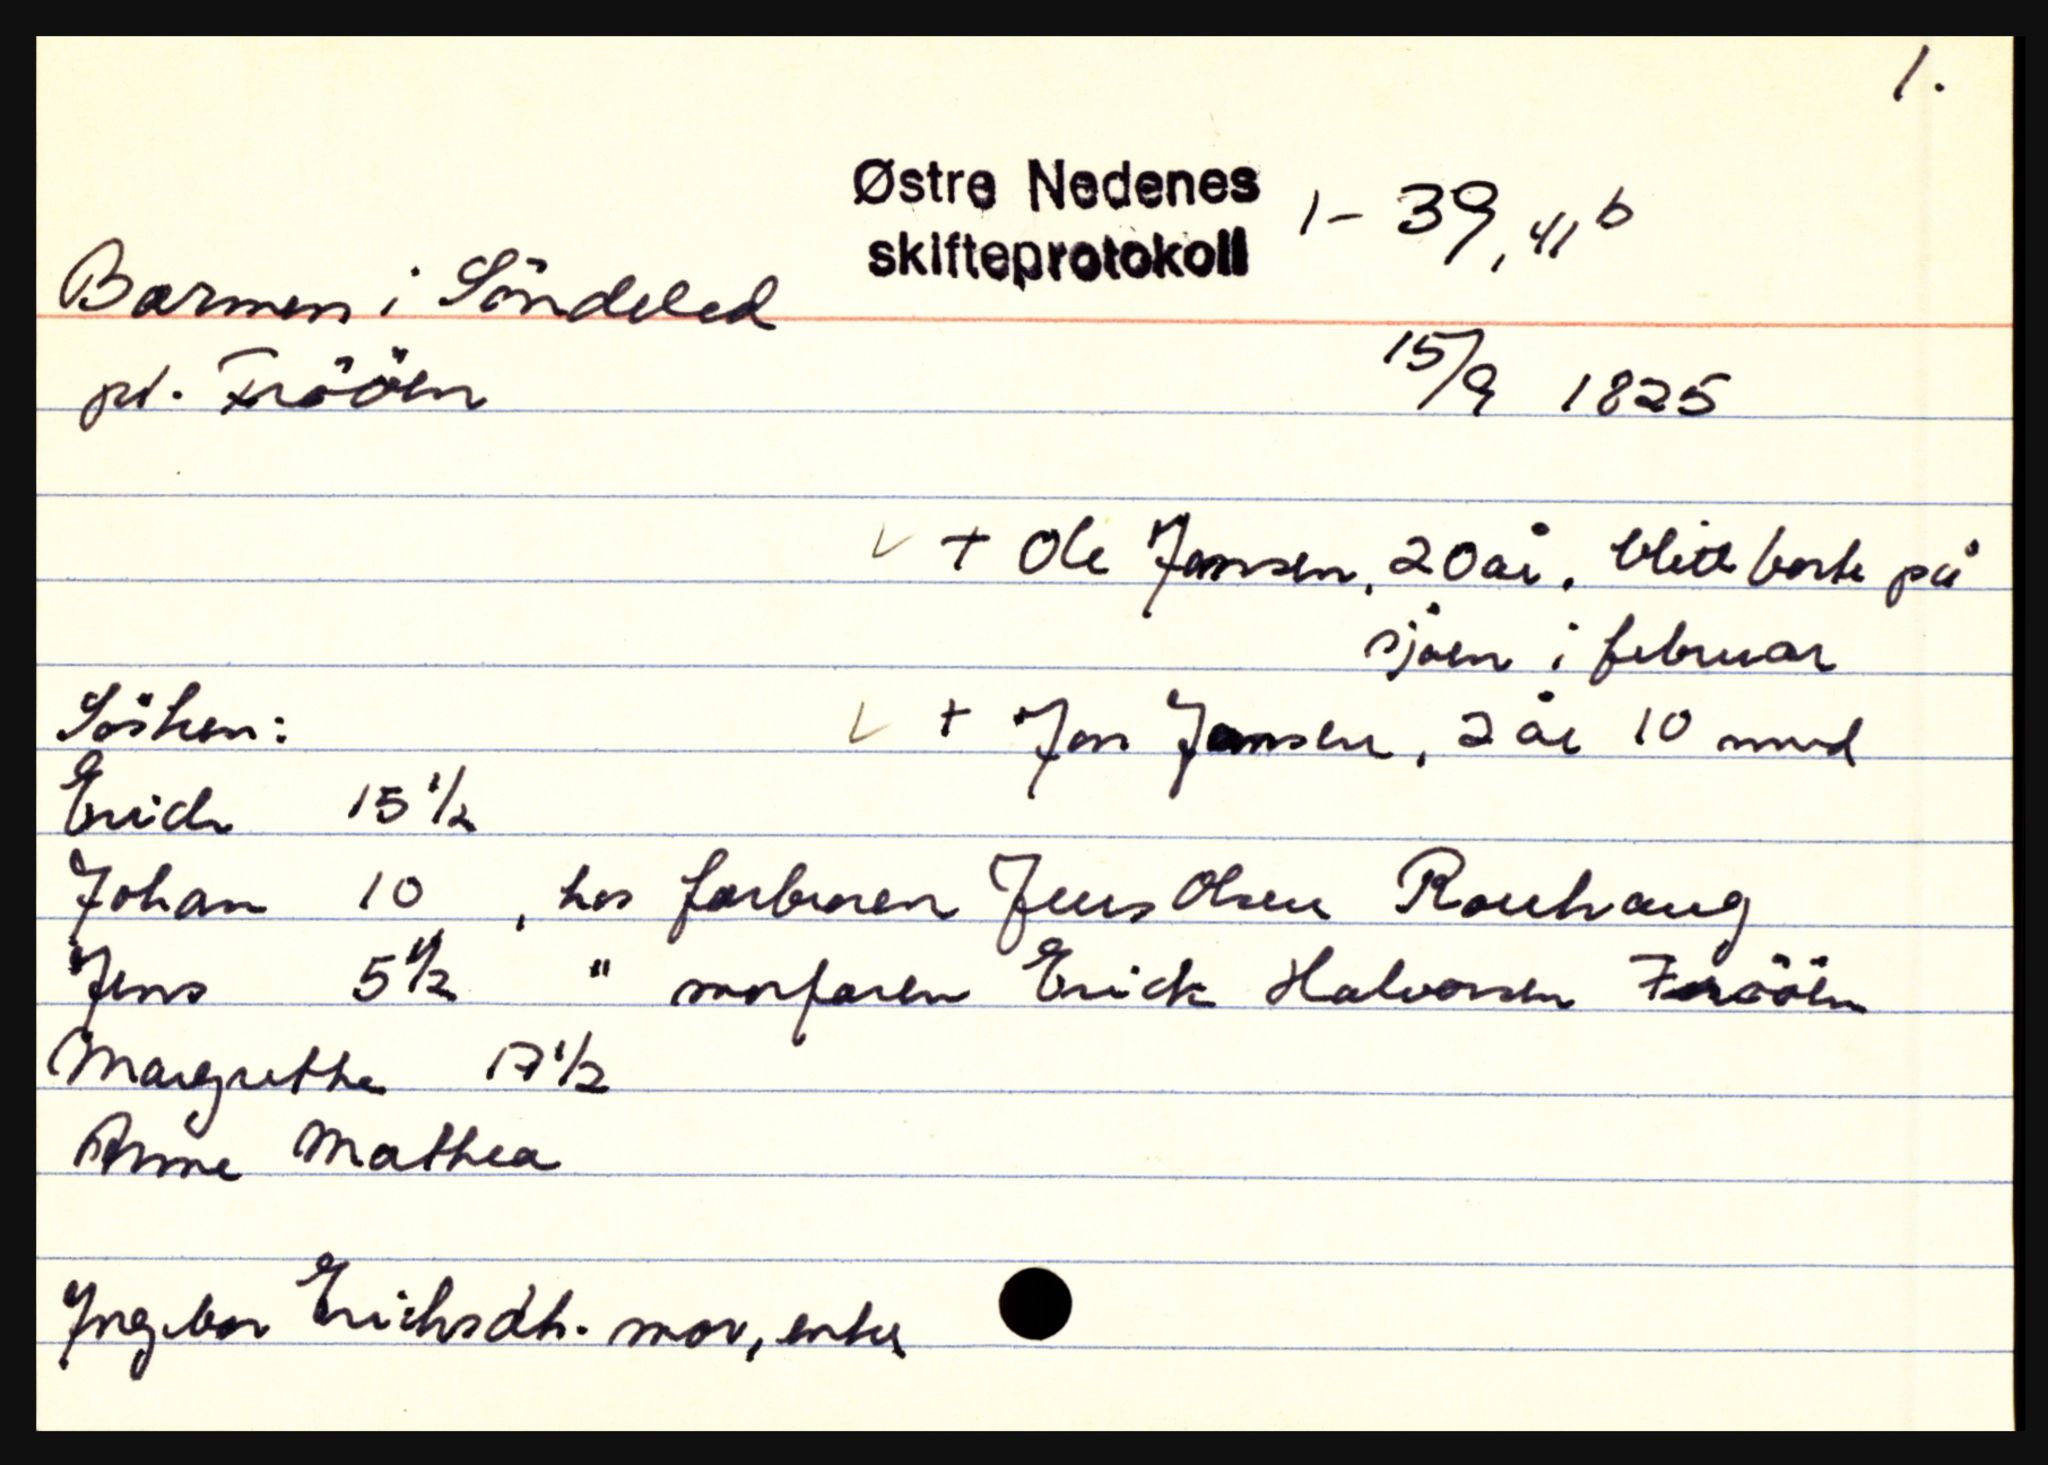 1.
Østre Nedenes
skifteprotokoll 1-39, 41 b
Barmen i Söndeled
pl. Frööen 15/9 1825
+ Ole Jansen, 20 år, blitt borte på
sjøen i februar
Sösken: + Jon Jansen, 2 år 10 mnd
Erich 15 1/2
Johan 10, hos farbroren Jens Olsen Rouhaug
Jens 5 1/2 " morfaren Erick Halvorsen Frööen
Margrethe 17 1/2
Anne Mathea
Ingebor Erichsdt. mor, enke